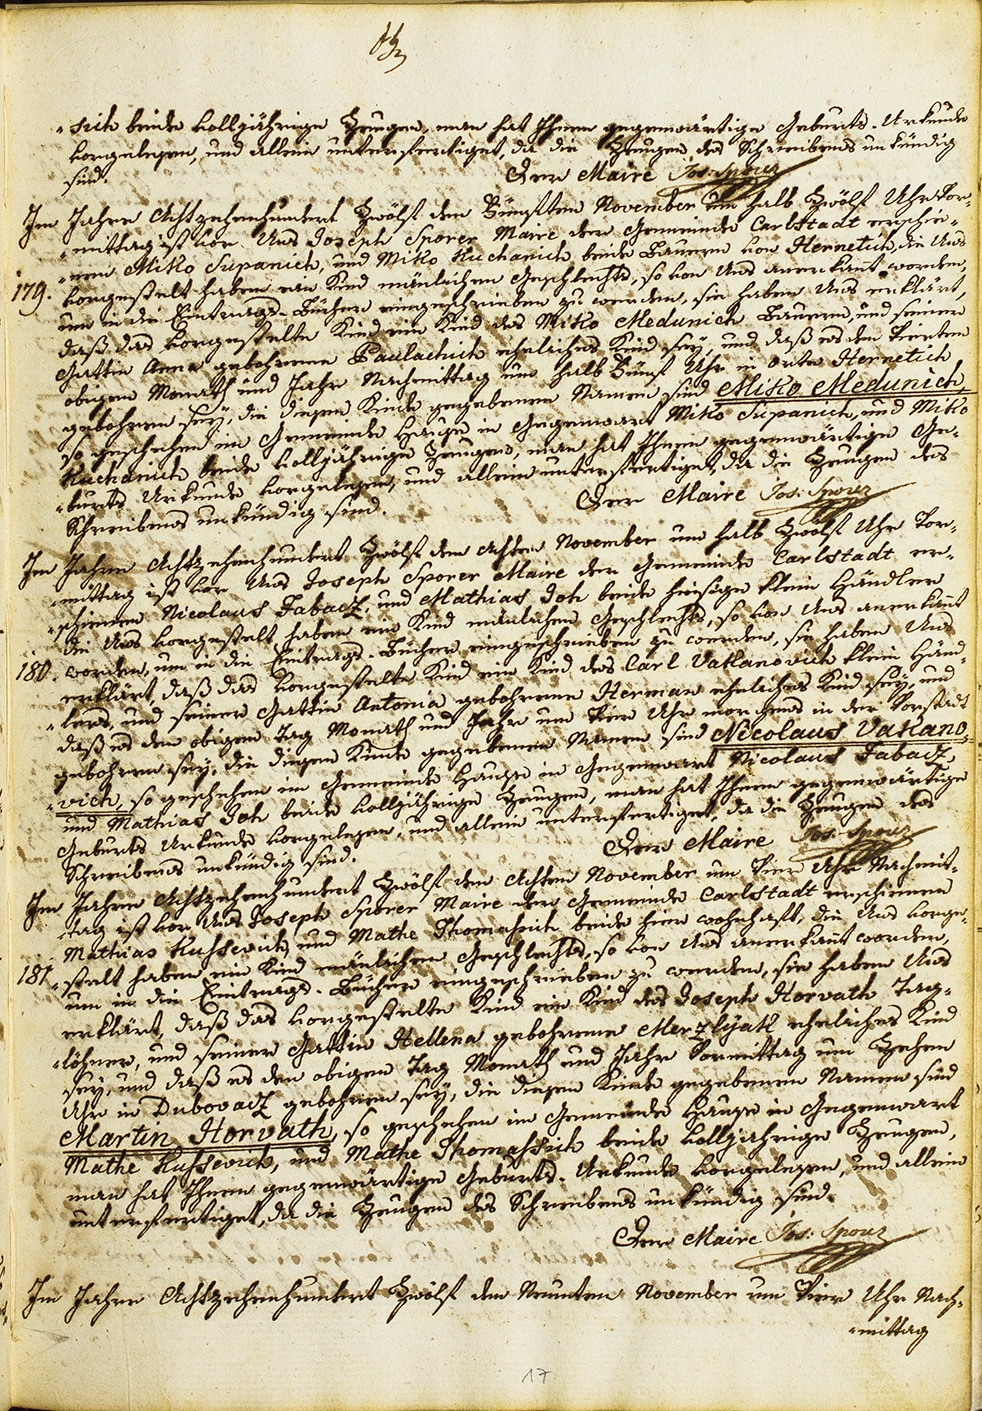 sich beide volljährige Zeugen, man hat Ihnen gegenwärtige Geburts-Urkunde
vorgelesen, und allein unterfertiget, da die Zeugen des Schreibens unkündig
sind. Der Maire Jos: Sporer
Im Jahre Achtzehenhundert Zwölf den Fünften November um halb Zwölf Uhr Vor-
-mittag ist vor Uns Joseph Sporer Maire der Gemeinde Carlstadt erschie-
-nen Miko Supanich, und Miko Kuchanich beide Bauern von Hernetich, die Uns
179. vorgestelt haben ein Kind mänlichen Geschlechts, so von Uns anerkant worden,
um in die Eintrags-Bücher eingeschrieben zu werden, sie haben Uns erklärt,
daß das vorgestelte Kind ein Kind des Miko Medunich Bauern, und seiner
Gattin Anna gebohrene Paulachich eheliches Kind seÿ, und daß es den Vierten
obigen Monath und Jahr Nachmittag um halb Fünf Uhr in Orte Hernetich
gebohren seÿ, die diesen Kinde gegebenen Namen sind Miko Medunich,
so geschehen im Gemeinde Hause in Gegenwart Miko Supanich, und Miko
Kuchanich beide volljährige Zeugen, man hat Ihnen gegenwärtige Ge-
-burts Urkunde vorgelesen, und allein unterfertiget, da die Zeugen des
Schreibens unkündig sind. Der Maire Jos: Sporer
Im Jahre Achtzehenhundert Zwölf den Achten November um halb Zwölf Uhr Vor-
-mittag ist vor Uns Joseph Sporer Maire der Gemeinde Carlstadt er-
-schienen Nicolaus Babacz, und Mathias Joh beide hiesige klein Händler
die Uns vorgestelt haben ein Kind mänlichen Geschlechts, so von Uns anerkant
180. worden, um in die Eintrags-Bücher eingeschrieben zu werden, sie haben Uns
erklärt, daß das vorgestelte Kind ein Kind des Carl Vakanovich klein Händ-
-lers, und seiner Gattin Antonia gebohrene Herman eheliches Kind seÿ, und
daß es den obigen Tag Monath und Jahr um Vier Uhr morgens in der Vorstadt
gebohren seÿ, die diesen Kinde gegebenen Namen sind Nicolaus Vakano-
-vich, so geschehen im Gemeinde Hause in Gegenwart Nicolaus Babacz,
und Mathias Joh beide volljährige Zeugen, man hat Ihnen gegenwärtige
Geburts Urkunde vorgelesen, und allein unterfertiget, da die Zeugen des
Schreibens unkündig sind. Der Maire Jos: Sporer
Im Jahre Achtzehenhundert Zwölf den Achten November um Vier Uhr Nachmit-
-tag ist vor Uns Joseph Sporer Maire der Gemeinde Carlstadt erschienen
Mathias Kussevich, und Mathe Thomassich beide hier wohnhaft, die Uns vorge-
181. -stelt haben ein Kind mänlichen Geschlechts, so von Uns anerkant worden,
um in die Eintrags-Bücher eingeschrieben zu werden, sie haben Uns
erklärt, daß das vorgestelte Kind ein Kind des Joseph Horvath Tag-
-löhner, und seiner Gattin Hellena gebohrene Merzlÿak eheliches Kind
seÿ, und daß es den obigen Tag Monath und Jahr Vormittag um Zehen
Uhr in Dubovacz gebohren seÿ, die diesen Kinde gegebenen Namen sind
Martin Horvath, so geschehen im Gemeinde Hause in Gegenwart
Mathe Kussevich, und Mathe Thomassich beide volljährige Zeugen,
man hat Ihnen gegenwärtige Geburts-Urkunde vorgelesen, und allein
unterfertiget, da die Zeugen des Schreibens unkündig sind.
Der Maire Jos: Sporer
Im Jahre Achtzehenhundert Zwölf den Neunten November um Vier Uhr Nach-
-mittag
17